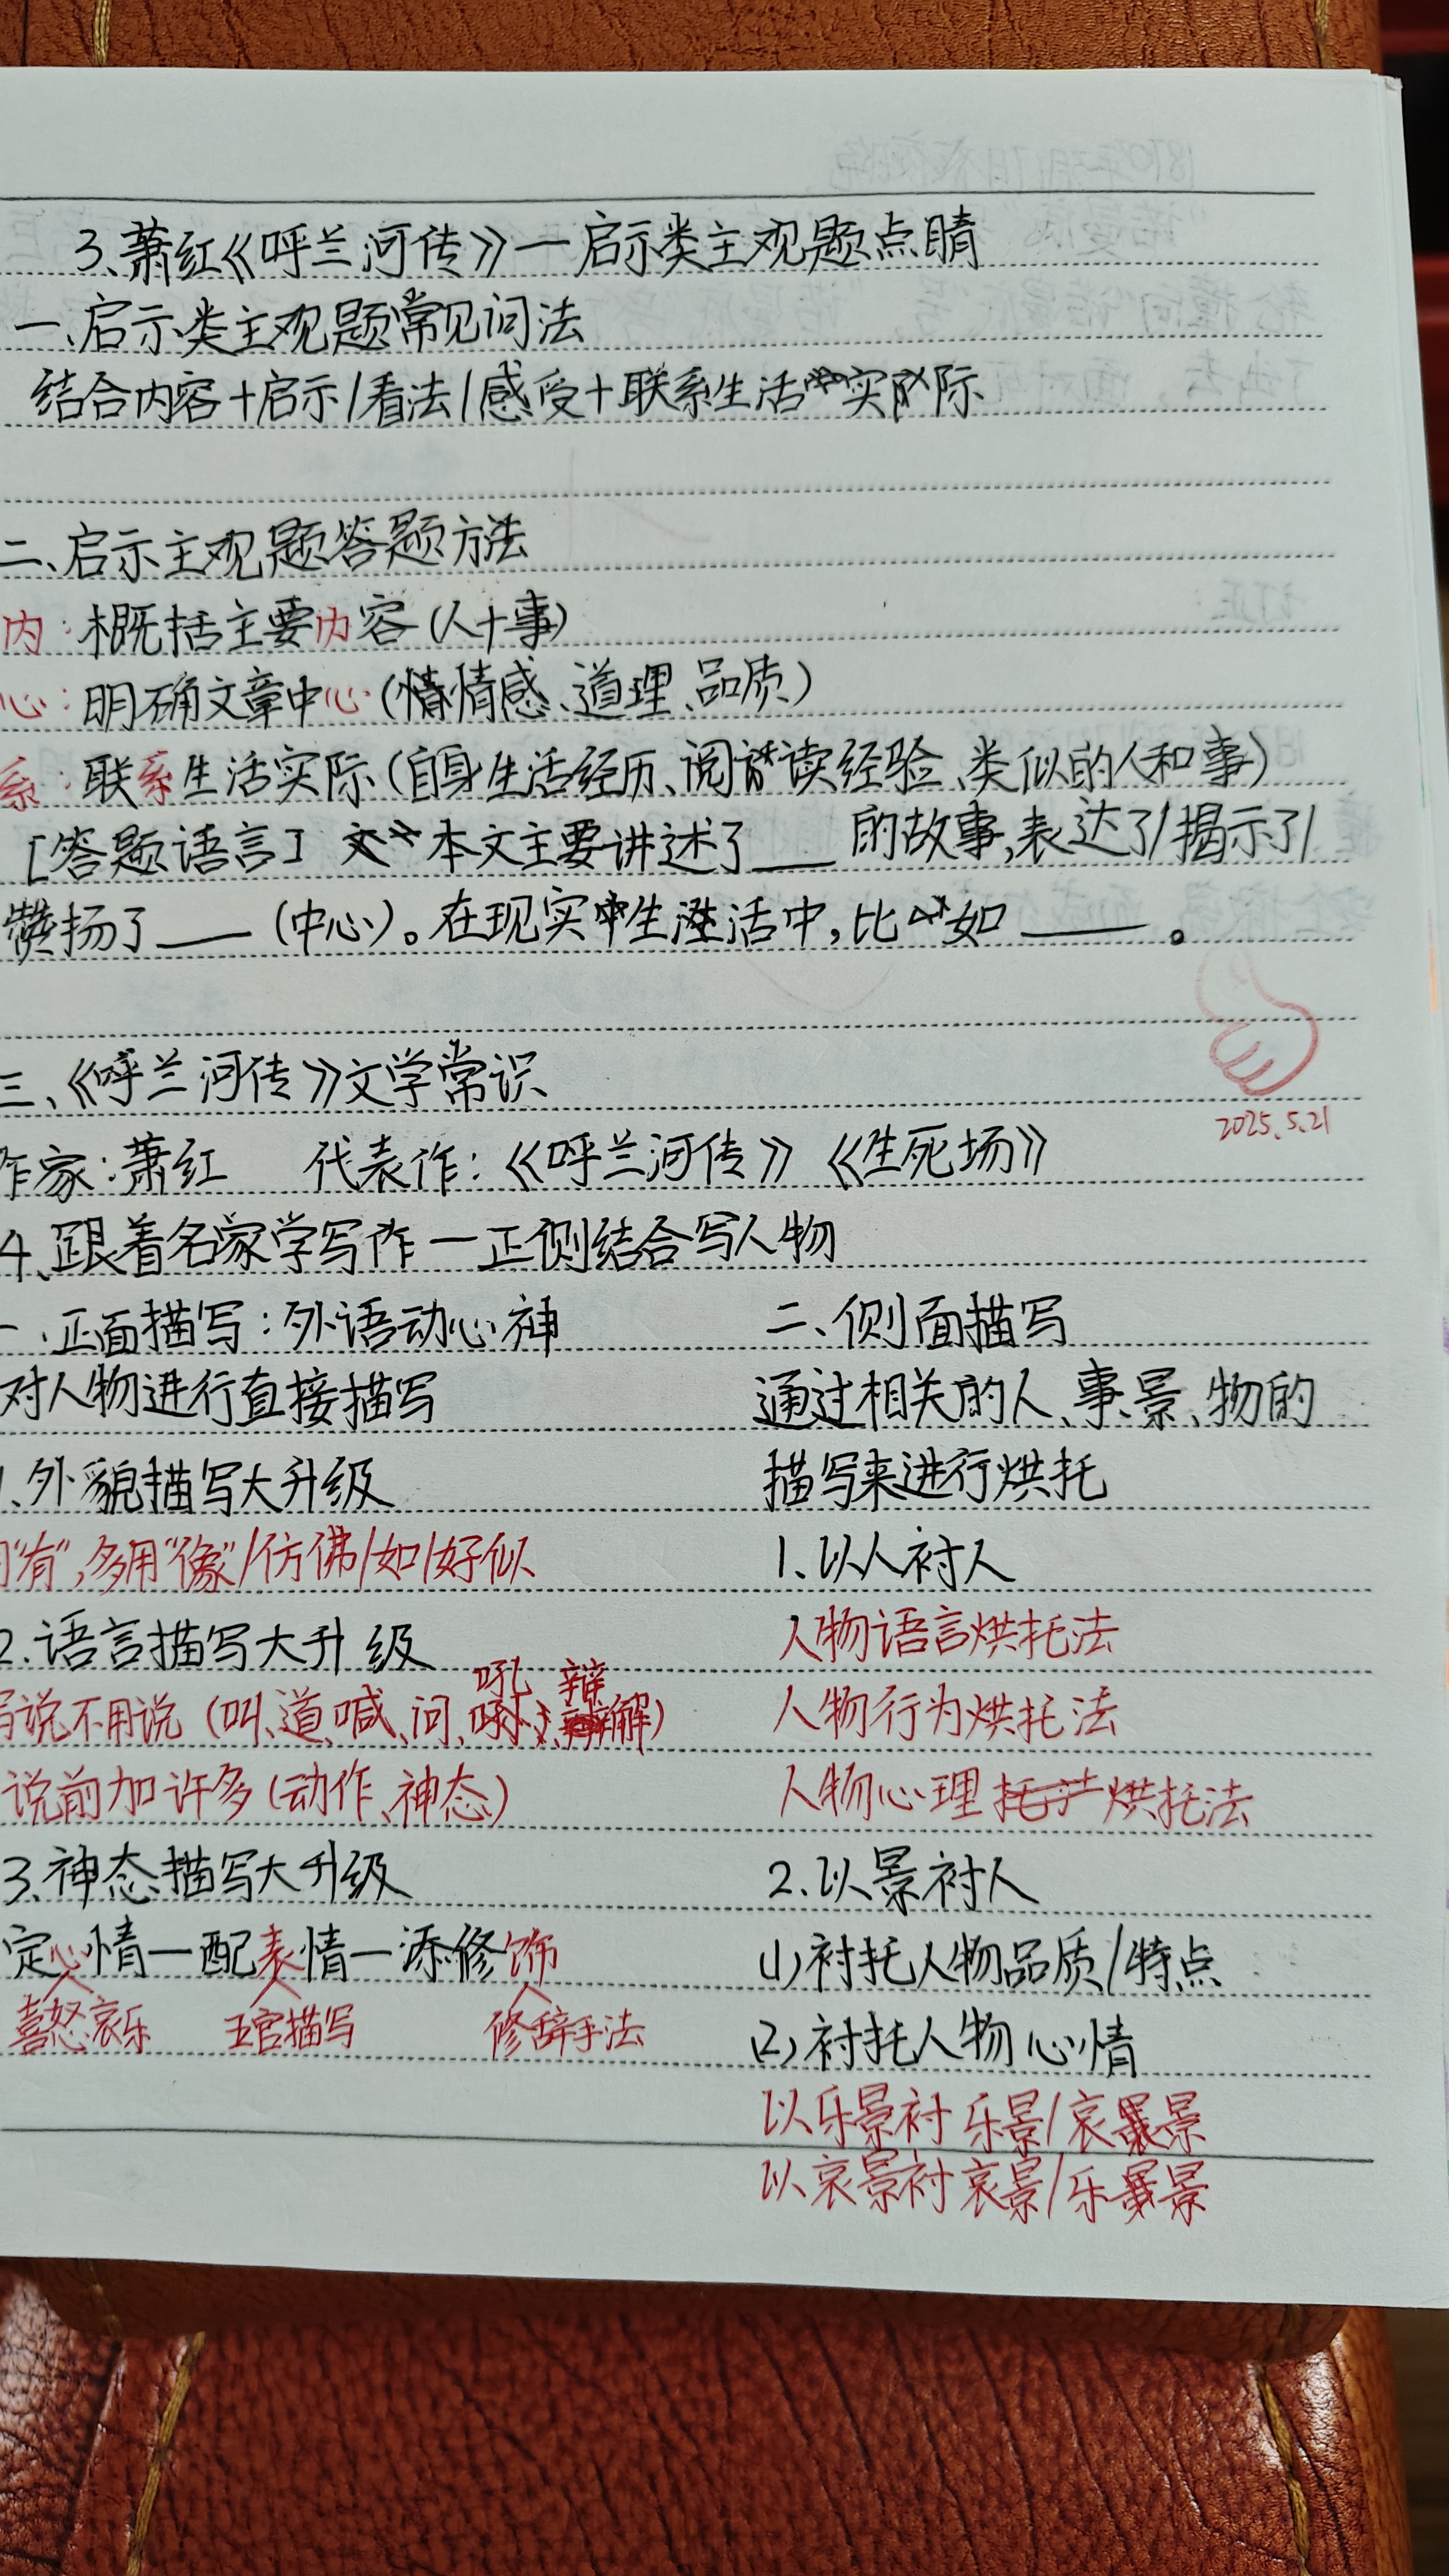 3、萧红《呼兰河传》—启示类主观题点睛
一、启示类主观题常见问法
结合内容+启示/看法/感受+联系生活实际
二、启示主观题答题方法
内:概括主要内容(人+事)
心:明确文章中心(情感、道理、品质)
系:联系生活实际(自身生活经历、阅读经验、类似的人和事)
[答题语言] 本文主要讲述了___的故事,表达了/揭示了/
赞扬了___(中心)。在现实生活中,比如___。
三、《呼兰河传》文学常识
2025.5.21
作家:萧红 代表作:《呼兰河传》《生死场》
4、跟着名家学写作—正侧结合写人物
一、正面描写:外语动心神
对人物进行直接描写
1、外貌描写大升级
"有",多用"像"/仿佛/如/好似
2.语言描写大升级
写说不用说(叫、道、喊、问、吼、辩解)
说前加许多(动作、神态)
3、神态描写大升级
定心情—配表情—添修饰
喜怒哀乐 五官描写 修辞手法
二、侧面描写
通过相关的人、事、景、物的
描写来进行烘托
1.以人衬人
人物语言烘托法
人物行为烘托法
人物心理烘托法
2.以景衬人
(1)衬托人物品质/特点
(2)衬托人物心情
以乐景衬乐景/哀景
以哀景衬哀景/乐景